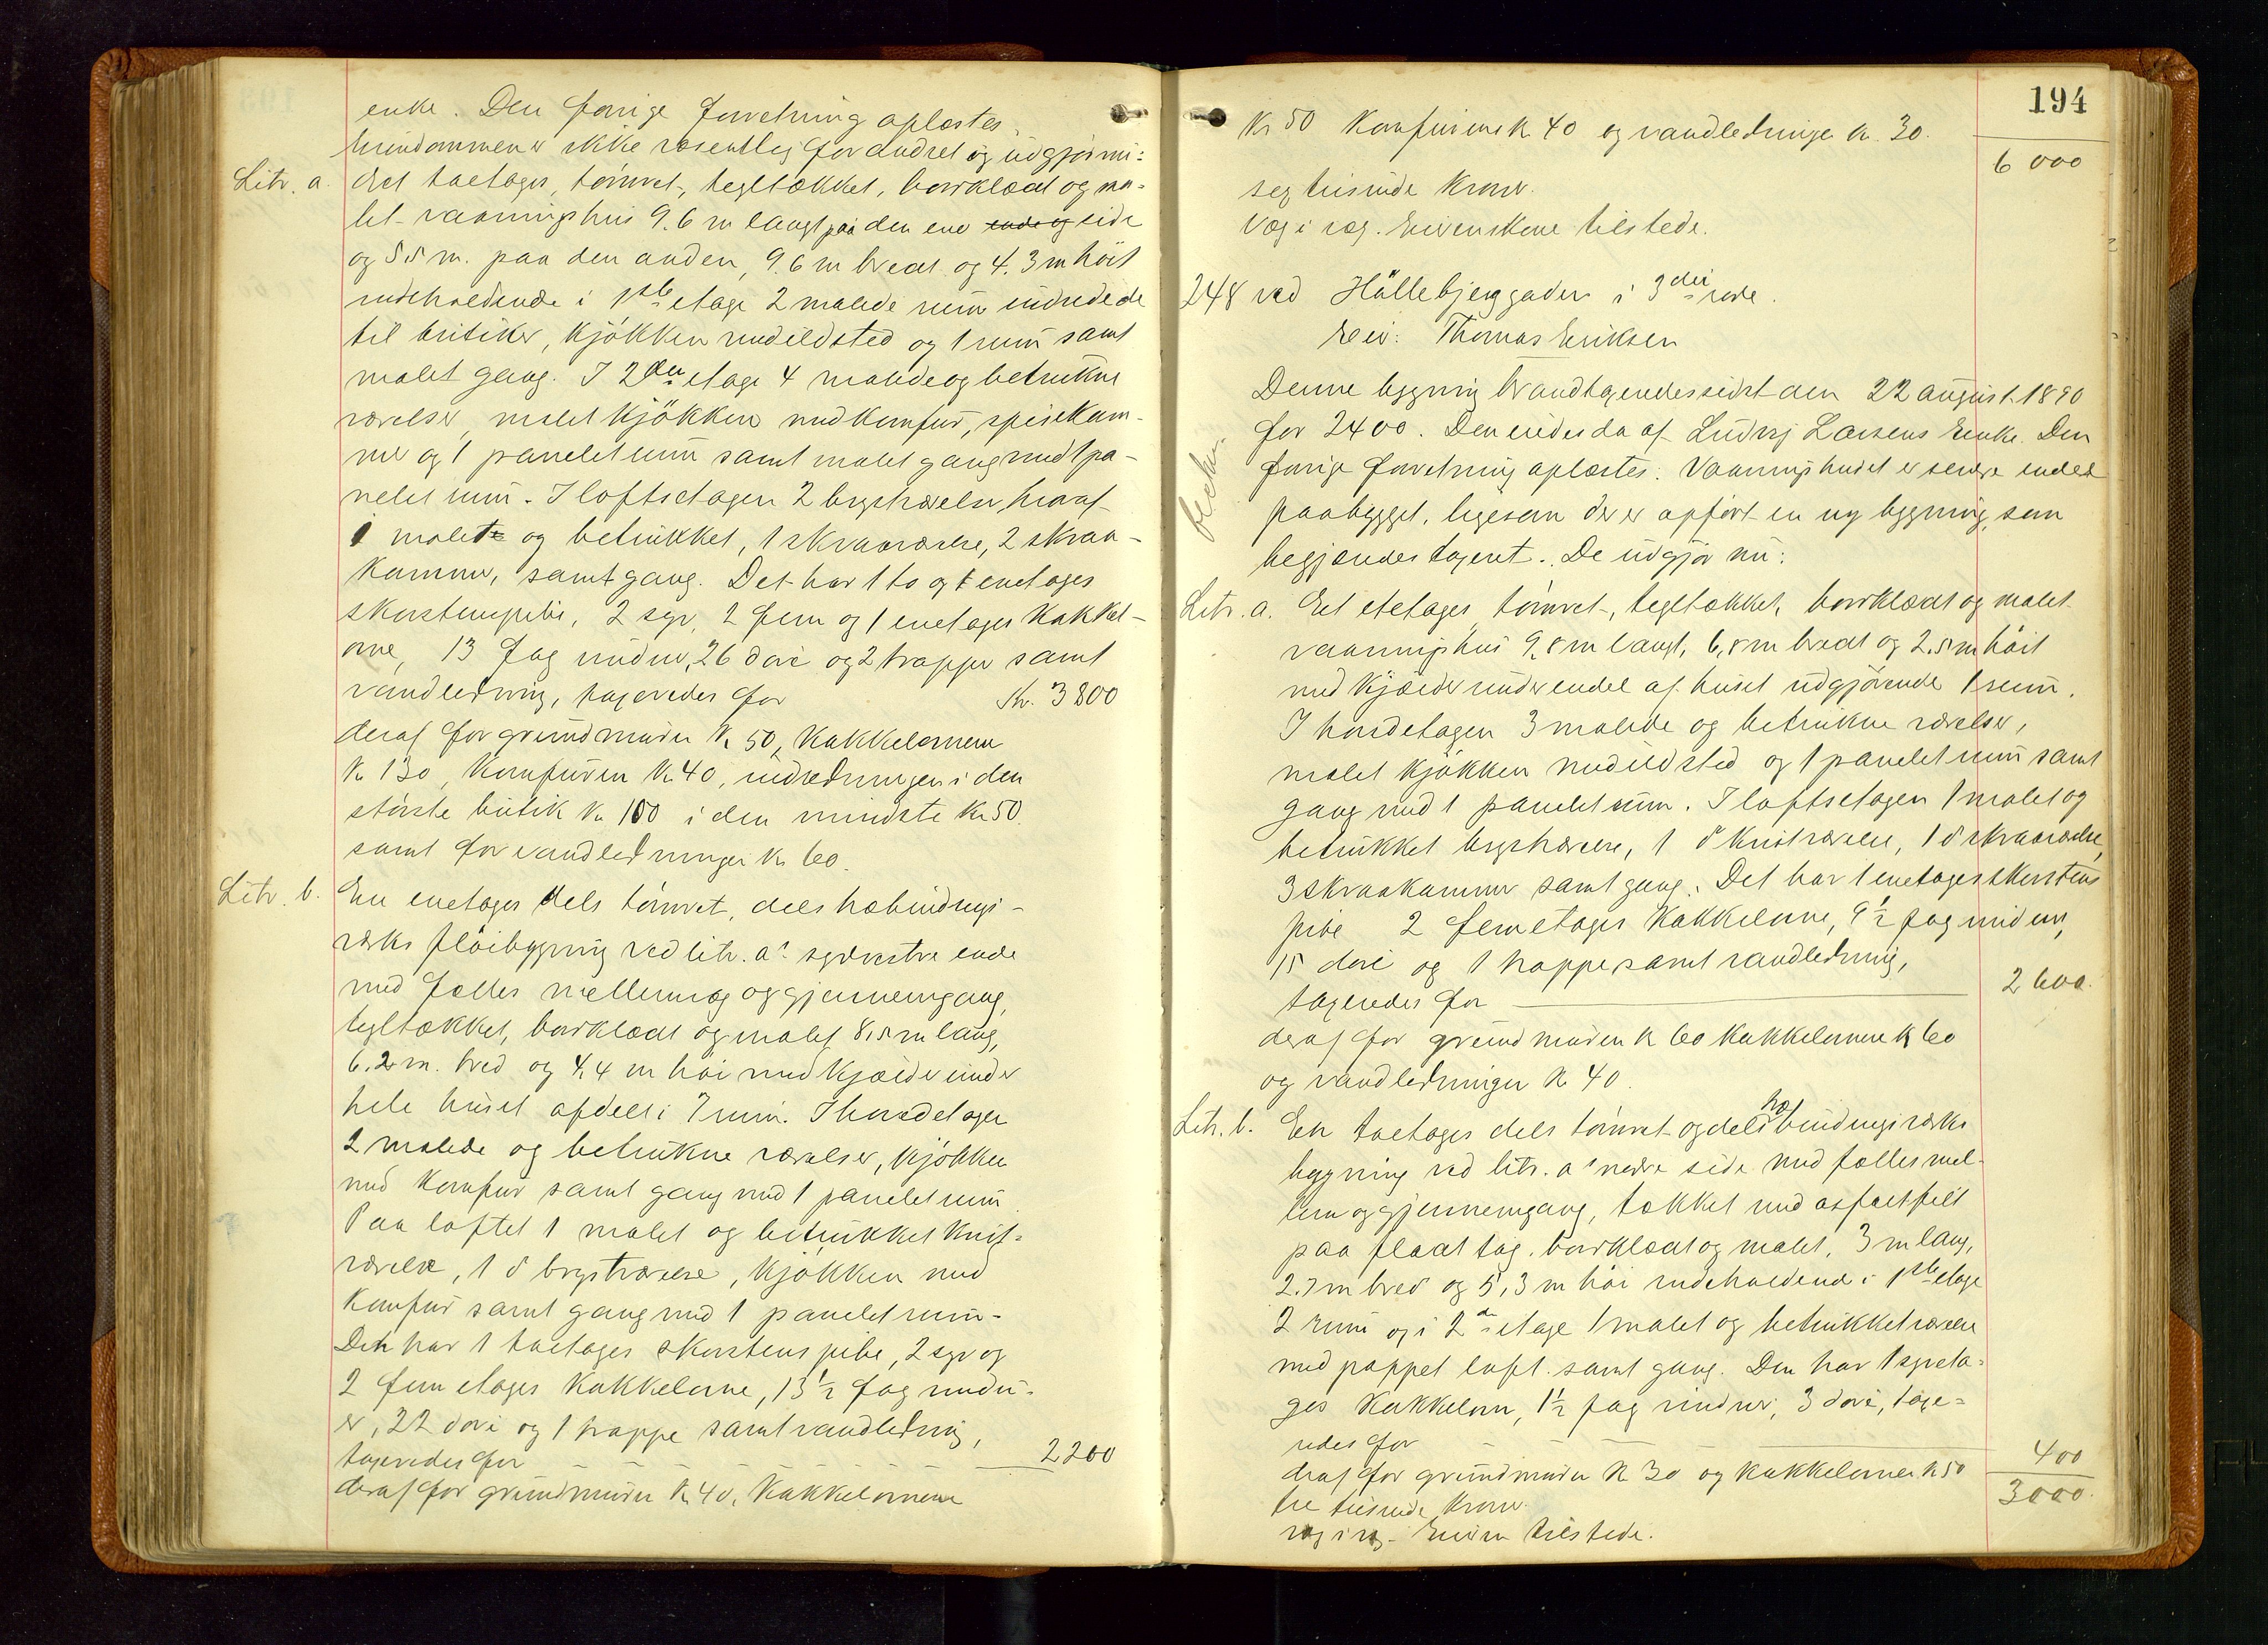 enke. Den forrige forretning oplæstes.
Eiendommen er ikke væsentlig forandret og udgjør nu:
Litr. a. det toetages, tømret-, tegltækket, bordklædt og ma-
let vaaningshus 9.6 m langt paa den ene ende og side
og 5.5 m. paa den anden, 9.6 m bredt og 4.3 m høit
indeholdende i 1ste etage 2 malede rum indredede
til butiker, kjøkken med ildsted og 1 rum samt
malet gang. I 2den etage 4 malede og betrukne
værelser, malet kjøkken med komfur, spisekam-
mer og 1 panelet rum samt malet gang med 1 pa-
nelet rum. I loftsetagen 2 brystværelser, hvoraf
1 malet og betrukket, 1 skraaværelse, 2 skraa-
kammer, samt gang. Det har 1 to og 1 enetages
skorstenspibe, 2 syv, 2 fem og 1 enetages kakkel-
ovne, 13 fag vinduer, 26 døre og 2 trapper samt
vandledning, taxeredes for Kr. 3800
deraf for grundmuren Kr 50, kakkelovnene
Kr 130, komfuren Kr 40, indredningen i den
største butik Kr 100 i den mindste Kr 50
samt for vandledningen Kr 60.
Litr. b. En enetages dels tømret, dels træbindings-
værks fløibygning ved litr. a's sydvestre ende
med fælles mellemvæg og gjennemgang,
tegltækket, bordklædt og malet 8,5 m lang,
6.2 m. bred og 4,4 m høi med kjælder under
hele huset afdelt i 7 rum. I hovedetagen
2 malede og betrukne værelser, kjøkken
med komfur samt gang med 1 panelet rum
Paa loftet 1 malet og betrukket kvist-
værelse, 1 do brystværelse, kjøkken med
komfur samt gang med 1 panelet rum.
Den har 1 toetages skorstenspibe, 2 syv og
2 fem etages kakkelovne, 13½ fag vindu-
er, 22 døre og 1 trappe samt vandledning,
taxeredes for 2200
deraf for grundmuren Kr 40, kakkelovnene
194
Kr 50 komfuren Kr 40 og vandledningen Kr. 30.
6 000
sex tusinde kroner.
Væg i væg. Eierinden tilstede.
248 ved Hållebjerggaden i 3die rode.
Eier: Thomas Eriksen
Denne bygning brandtaxeredes sidst den 22 august 1890
for 2400. Den eiedes da af Ludvig Larsens Enke. Den
forrige forretning oplæstes. Vaaningshuset er senere endel
paabygget, ligesom der er opført en ny bygning, som
begjæredes taxeret. De udgjør nu:
Litr. a. Et etetages, tømret-, tegltækket, bordklædt og malet
vaaningshus 9,8 m langt, 6,8 m bredt og 2.5 m høit
med kjælder under endel af huset udgjørende 1 rum.
I hovedetagen 3 malede og betrukne værelser,
malet kjøkken med ildsted og 1 panelet rum samt
gang med 1 panelet rum. I loftsetagen 1 malet og
betrukket brystværelse, 1 do kvistværelse, 1 do skraaværelse,
3 skraakammer samt gang. Det har 1 enetages skorstens
pibe 2 femetages kakkelovne, 9½ fag vinduer,
15 døre og 1 trappe samt vandledning,
taxeredes for 2600.
deraf for grundmuren Kr 60 kakkelovnene Kr 60
og vandledningen Kr 40.
Litr. b. En toetages dels tømret og dels træbindingsværks
bygning ved litr. a's nedre side med fælles mel-
lem og gjennemgang, tækket med asfaltfilt
paa fladt tag, bordklædt og malet, 3 m lang,
2.7 m bred og 5,3 m høi indeholdende i 1ste etage
2 rum og i 2den etage 1 malet og betrukket værelse
med pappet loft samt gang. Den har 1 syveta-
ges kakkelovn, 1½ fag vinduer, 3 døre, taxe-
redes for 400
deraf for grundmuren Kr 30 og kakkelovnen Kr 50
tre tusinde kroner. 3000.
væg i væg. Eieren tilstede.